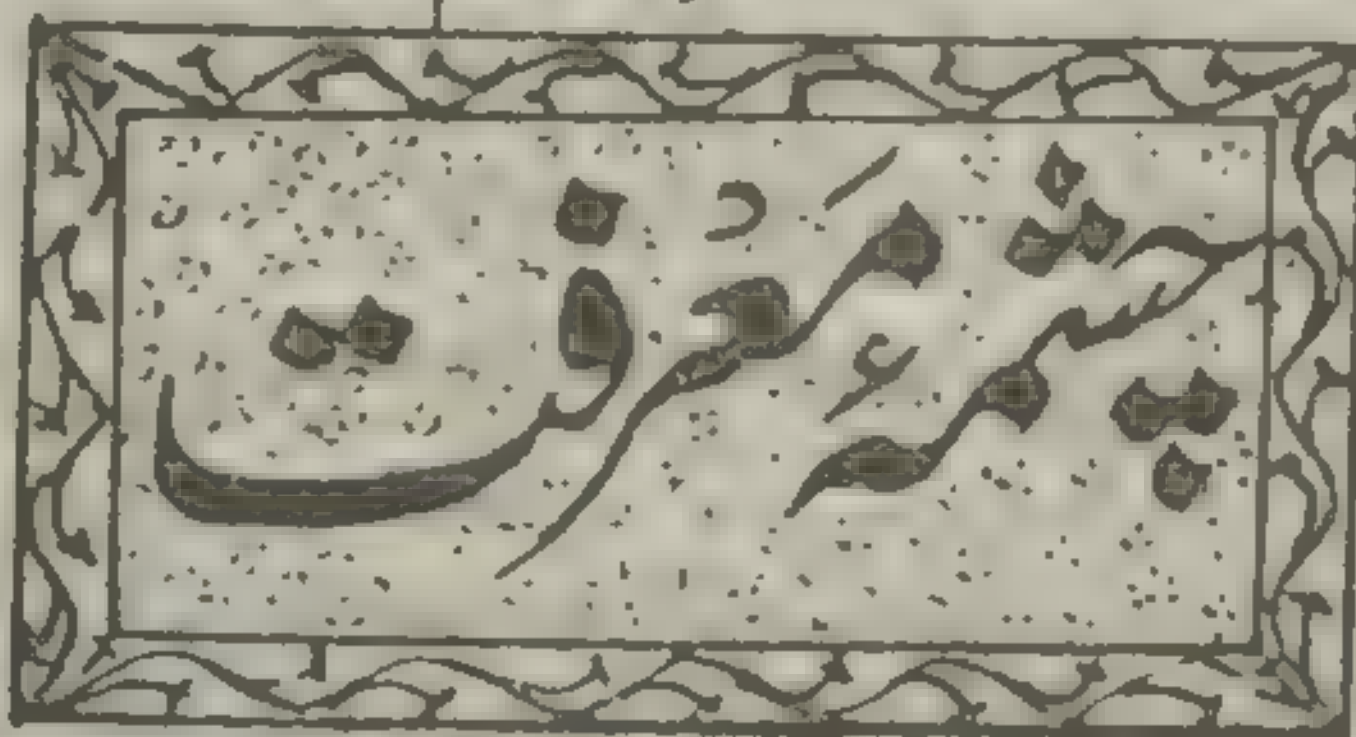 چشمۀ معرفت